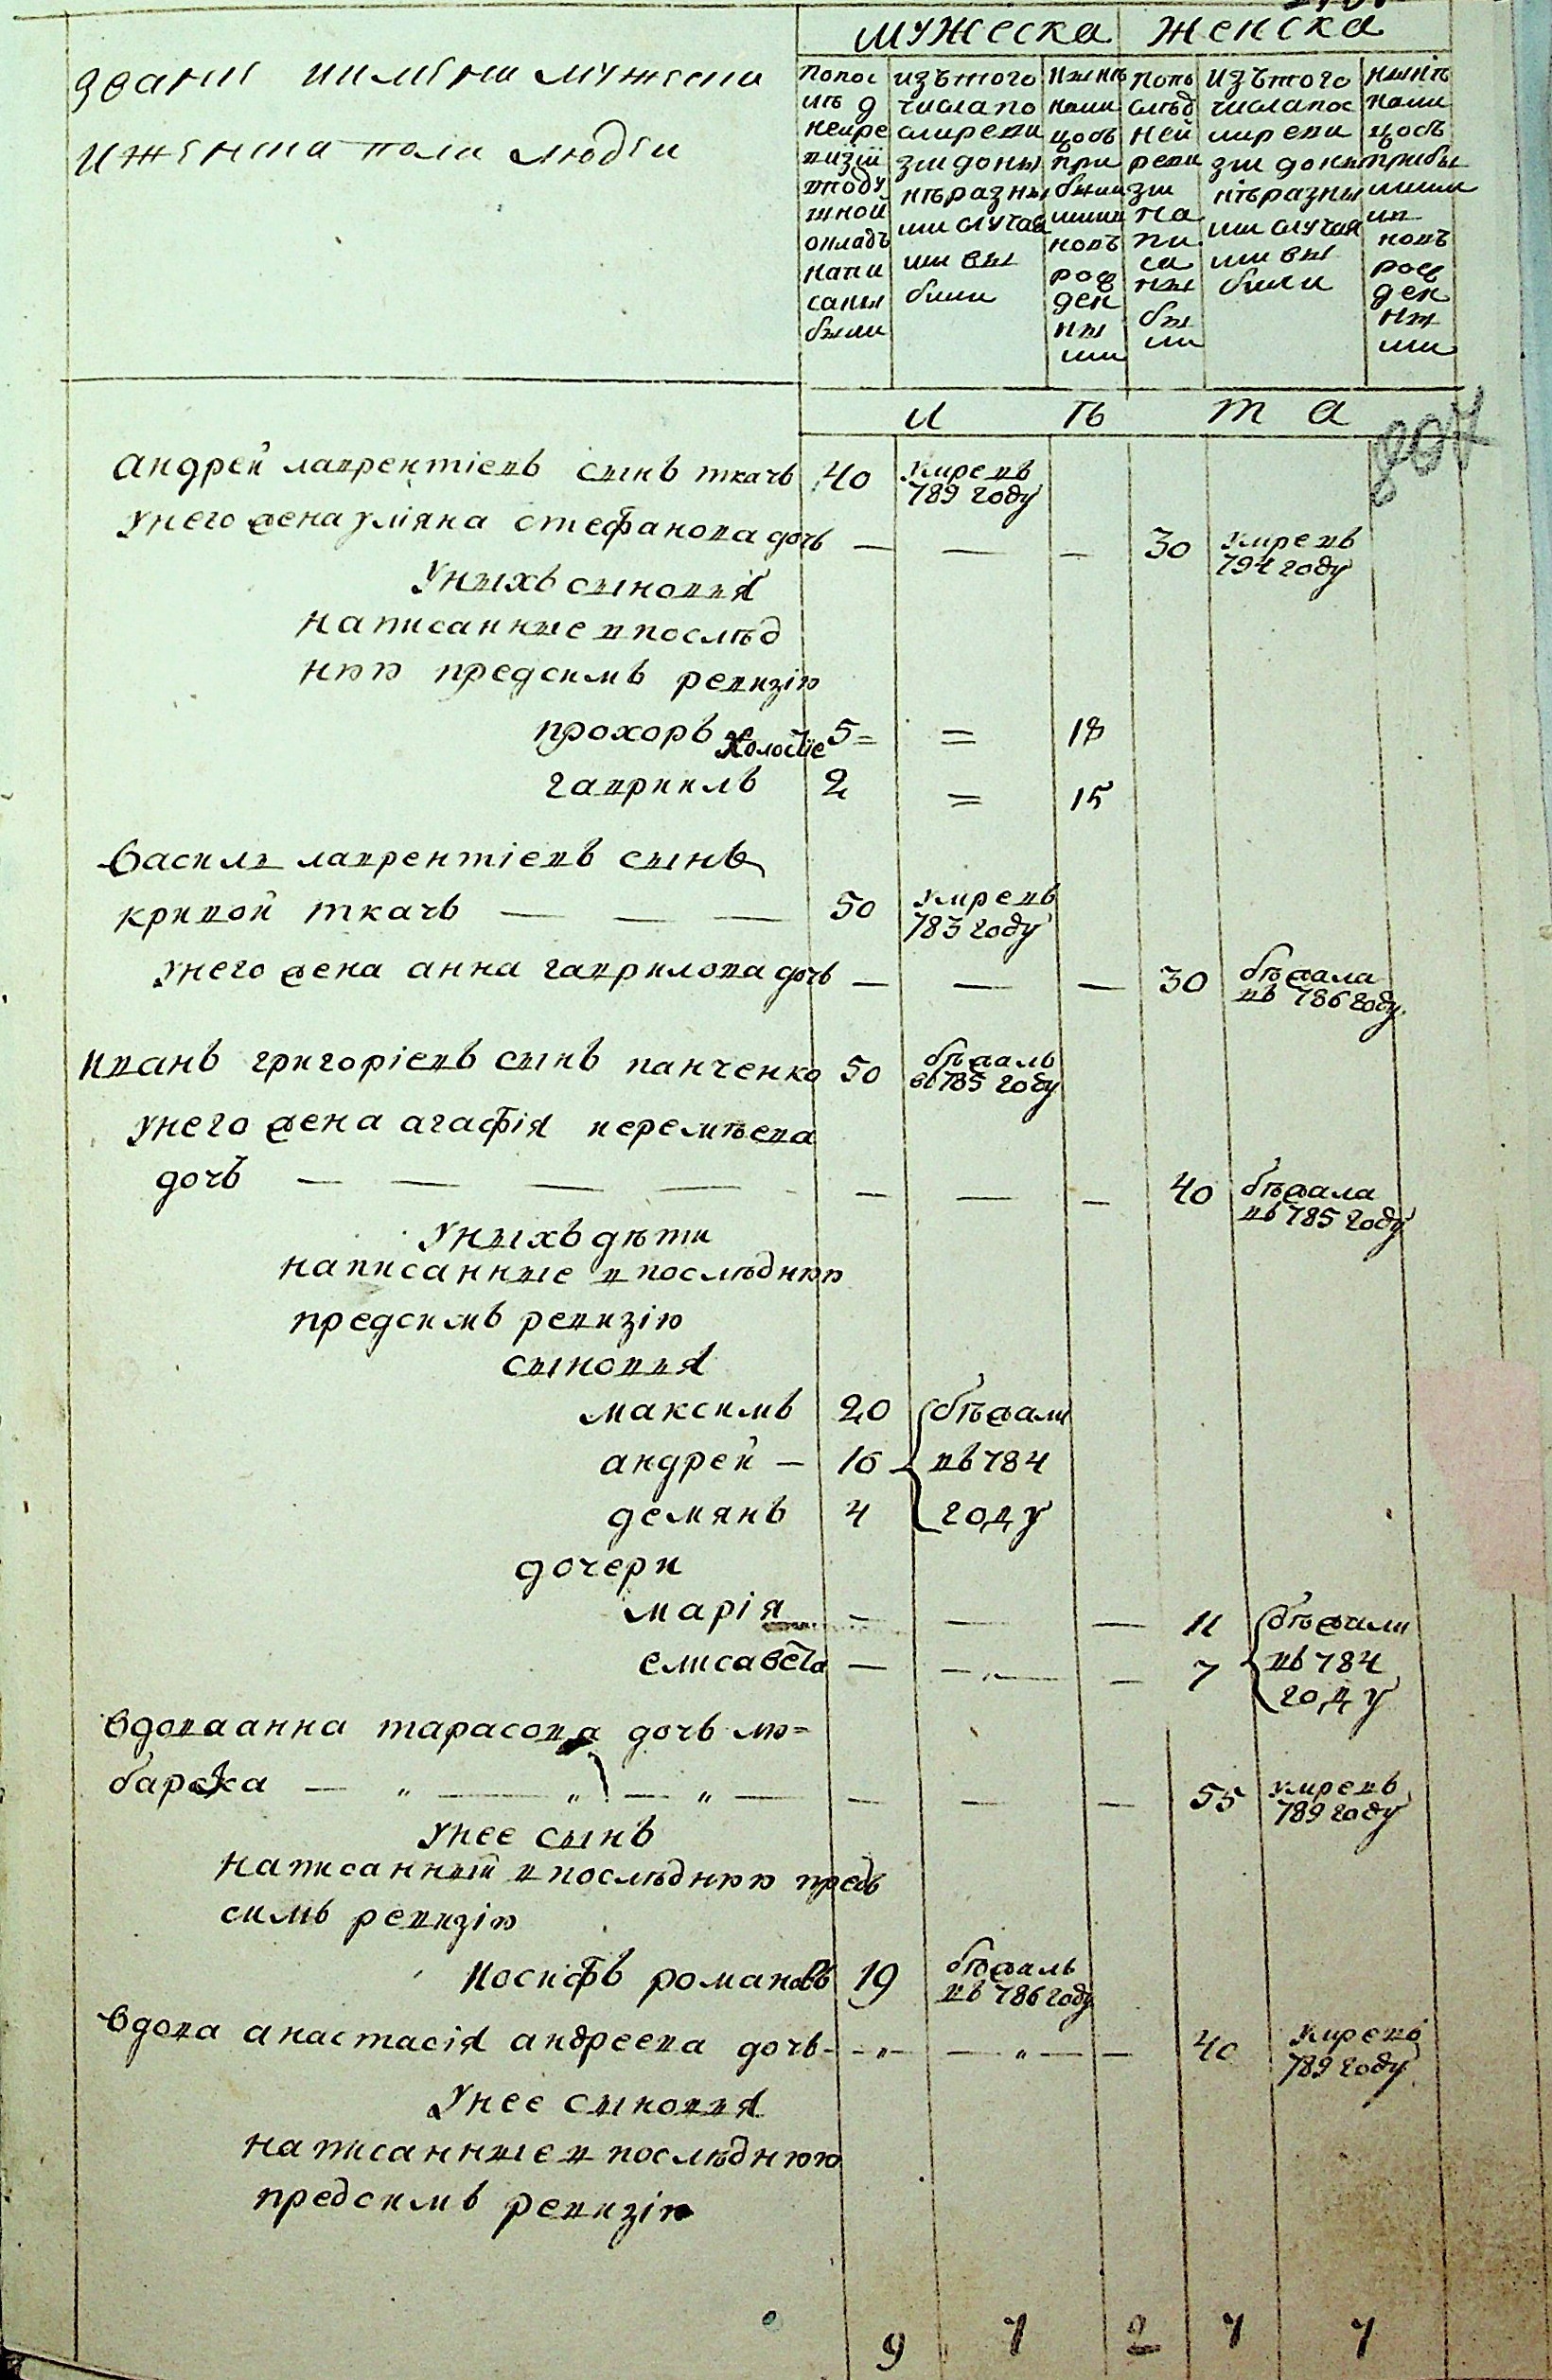 мужеска женска
звание и имяна мужеска
и женска пола людеи
По пос
лѣд
неи ре
визіи
в поду
шной
окладъ
напи
саны
были
изъ того
числа по
сли реви
зіи до ны
нѣ разны
ми случая
ми вы
были
Нынѣ
нали
цо съ
при
бывши
ми и
новъ
рож
ден
ны
ми
По по
слѣд
ней
реви
зіи
на
пи
са
ны
бы
ли
Изъ того
числа пос
ли реви
зіи до ны
нѣ разны
ми случая
ми вы
были
Нынѣ
нали
цо съ
прибы
вшими
и
новъ
рож
ден
ны
ми
л ѣ т а
Андрей лаврентіевъ сынъ ткачъ 40 умре въ
789 году
У него жена уліяна стефанова дочь — — — 30 умре въ
794 году
У ныхъ сыновья
написанные в послѣд
нюю предсимъ ревизію
прохоръ холостіе 5 = = 18
гавриилъ 2 = 15
Василь лаврентіевъ сынъ
кривой ткачъ — — — 50 умре въ
783 году
У него жена анна гаврилова дочь — — — 30 бѣжала
въ 786 году
Иванъ григоріевъ сынъ панченко 50 бѣжалъ
въ 785 году
У него жена агафія иеремѣева
дочь — — — — — — — 40 бѣжала
въ 785 году
У ныхъ дѣти
написанные в послѣднюю
предсимъ ревизію
сыновья
максимъ 20 бѣжали
андрей — 16 въ 784
демянъ 4 году
дочери
марія — — — 11 бѣжали
елисавета — — — 7 въ 784
году
Вдова анна тарасова дочь лю=
барска — „ — „ — „ — — — — 55 умре въ
789 году
У нее сынъ
написанный в послѣднюю предъ
симъ ревизію
Иосифъ романовъ 19 бѣжалъ
въ 786 году
Вдова анастасія андреева дочь — „ — — „ — — 40 умре въ
789 году
У нее сыновья
написанные в послѣднюю
предсимъ ревизію
9 7 2 7 7